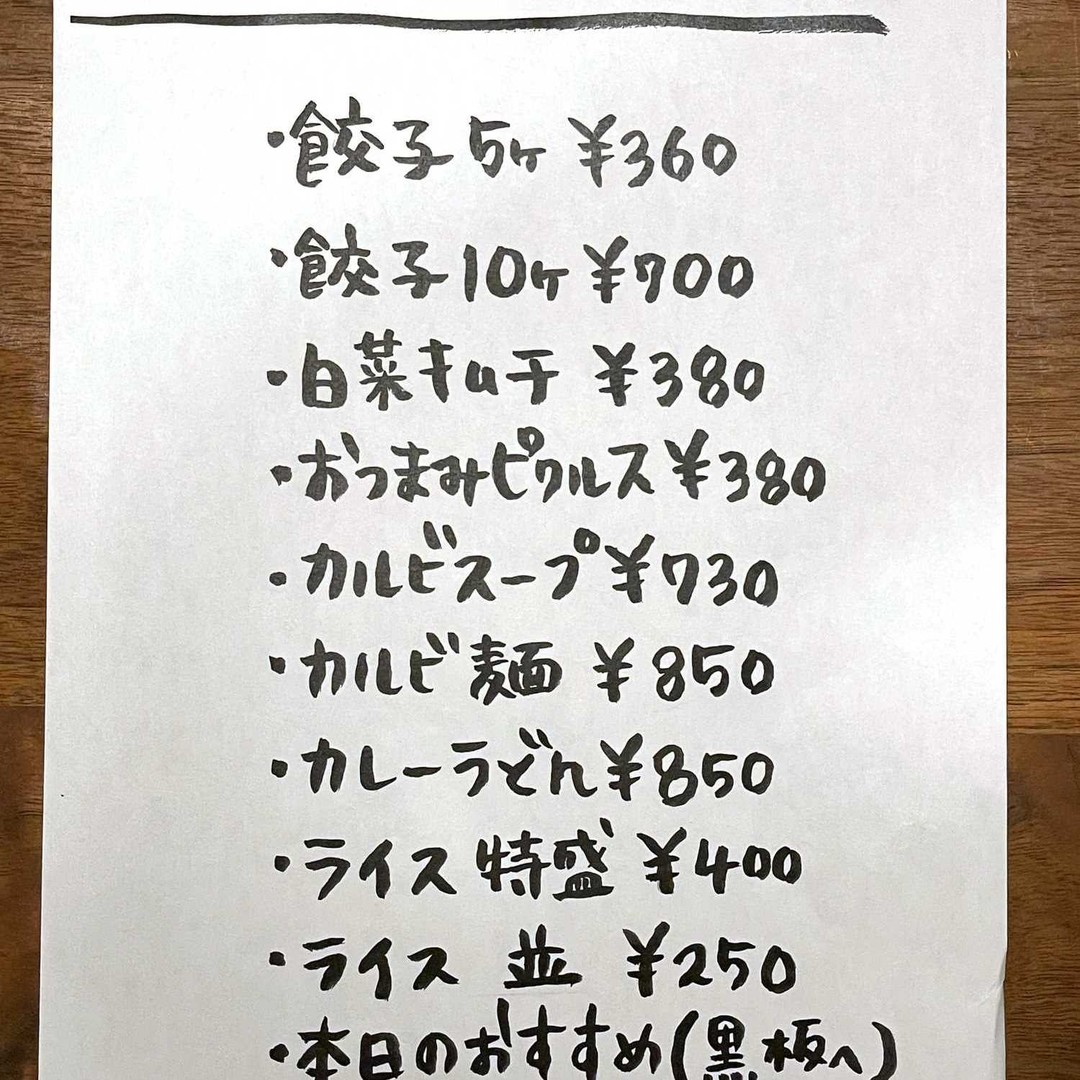 ・餃子 5ヶ ¥360
・餃子 10ヶ ¥700
・白菜キムチ ¥380
・おつまみピクルス ¥380
・カルビスープ ¥730
・カルビ麺 ¥850
・カレーうどん ¥850
・ライス 特盛 ¥400
・ライス 並 ¥250
・本日のおすすめ(黒板へ)